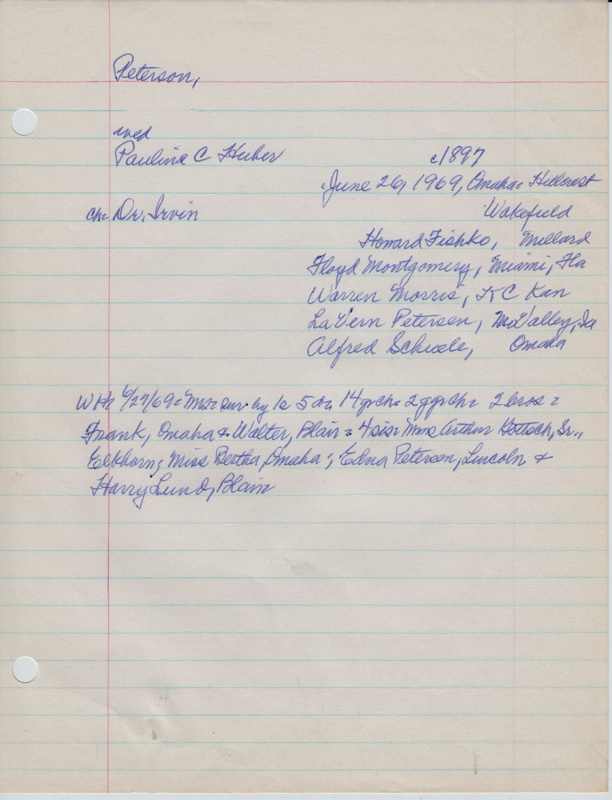 Peterson,
wed
Pauline C Huber c1897
June 26, 1969, Omaha Hillcrest
ch= Dr. Irvin Wakefield
Howard Fishko, Millard
Floyd Montgomery, Miami, Fla
Warren Morris, KC Kan
LaVern Petersen, Mo Valley, Ia
Alfred Schiele, Omaha
WH 6/27/69= Mrs= sur by 1s 5 da 14 grch= 2 ggrch= 2 bros=
Frank, Omaha & Walter, Blair= 4 sis= Mms Arthur Gottsch, Sr.,
Elkhorn; Miss Bertha, Omaha; Edna Petersen, Lincoln &
Harry Lund, Blair